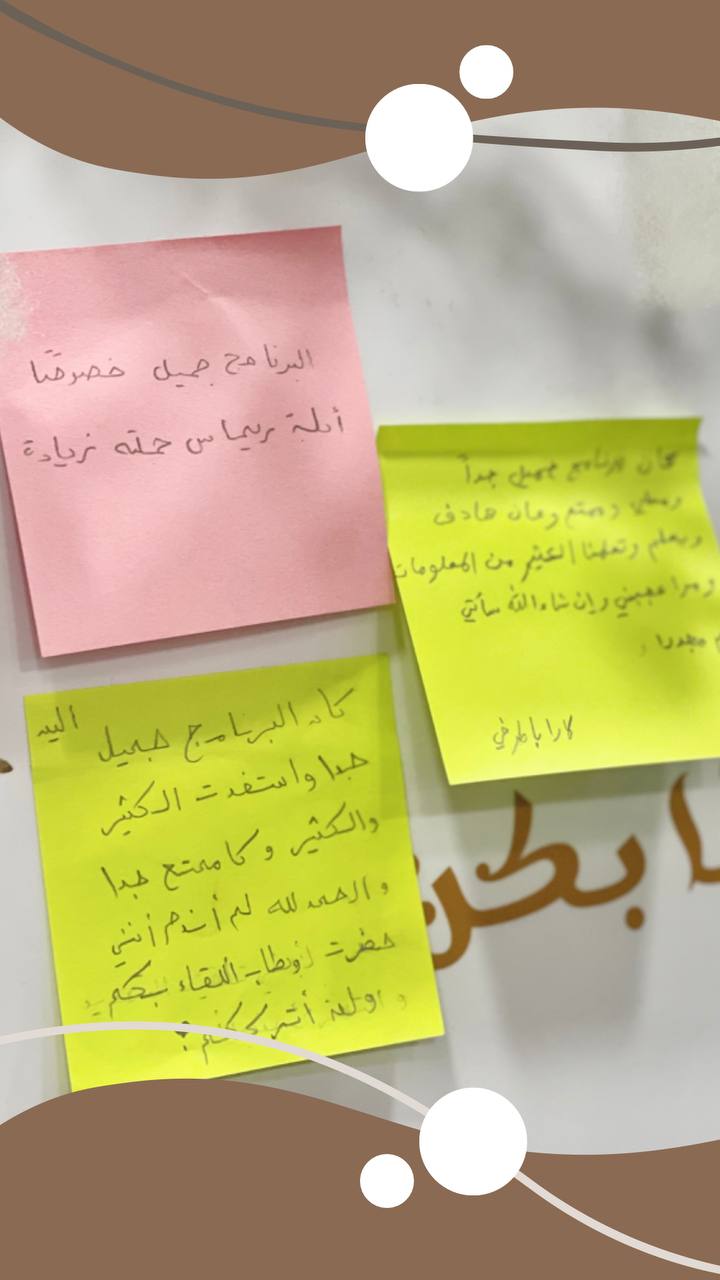 البرنامج جميل خصوصًا
أبلة ريماس حلته زيادة
كان برنامج جميل جداً
وممتع وكان هادف
وتعلمنا الكثير من المعلومات
ومرا عجبني وإن شاءالله سأتي
مجددا
كان البرنامج جميل
جدا واستفدت الكثير
والكثير و كا ممتع جدا
والحمد لله لم أندم أنني
حضرت وطاب اللقاء بكم
بكن